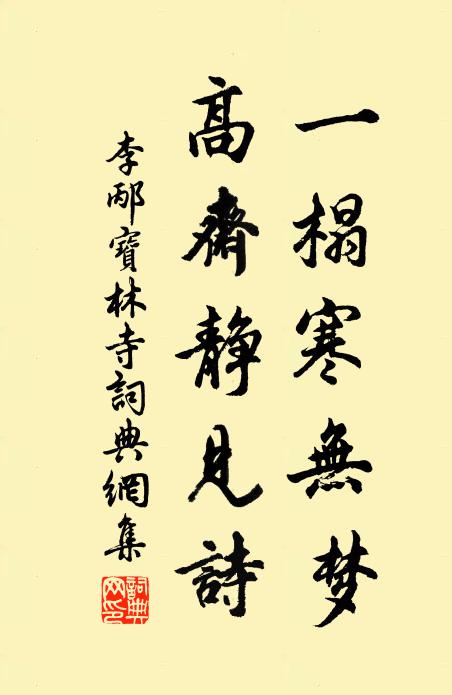 一榻寒無梦
高齋静見詩
李邴寶林寺詞典網集
詞典网印